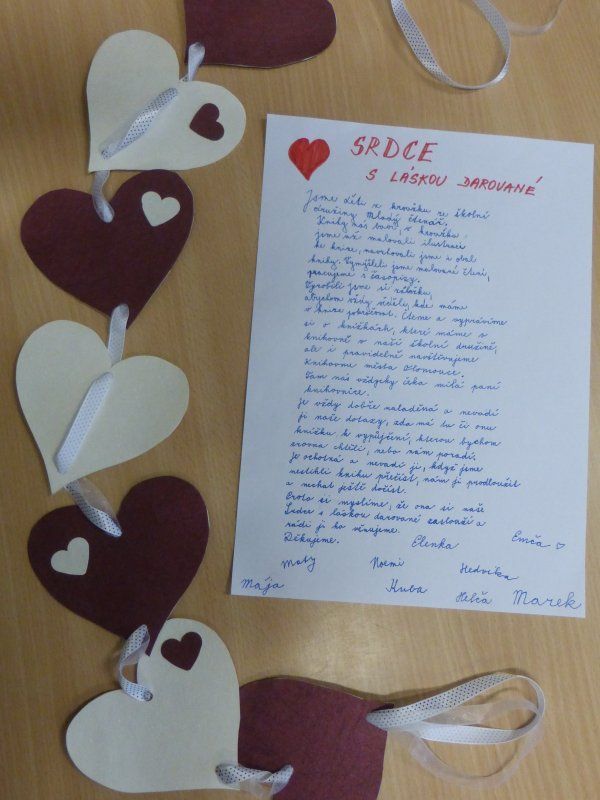 SRDCE
S LÁSKOU DAROVANÉ
Jsme děti z kroužku ze školní
družiny Mladý čtenář.
Knihy nás baví, v kroužku
jsme už malovali ilustraci
ke knize, navrhovali jsme i obal
knihy. Vymýšleli jsme malované čtení,
pracujeme s časopisy.
Vyrobili jsme si záložku,
abychom vždy věděli, kde máme
v knize pokračovat. Čteme a vyprávíme
si o knížkách, které máme v
knihovně v naší školní družině,
ale i pravidelně navštěvujeme
Knihovnu města Olomouce.
Tam nás vždycky čeká milá paní
knihovnice.
Je vždy dobře naladěná a nevadí
jí naše dotazy, zda má tu či onu
knížku k vypůjčení, kterou bychom
zrovna chtěli, nebo nám poradí.
Je ochotná a nevadí jí, když jsme
nestihli knihu přečíst, nám ji prodloužit
a nechat ještě dočíst.
Proto si myslíme, že ona si naše
Srdce s láskou darované zaslouží a
rádi jí ho věnujeme.
Děkujeme.
Elenka
Emča
Maty
Noemi
Hedvika
Mája
Kuba
Helča
Marek